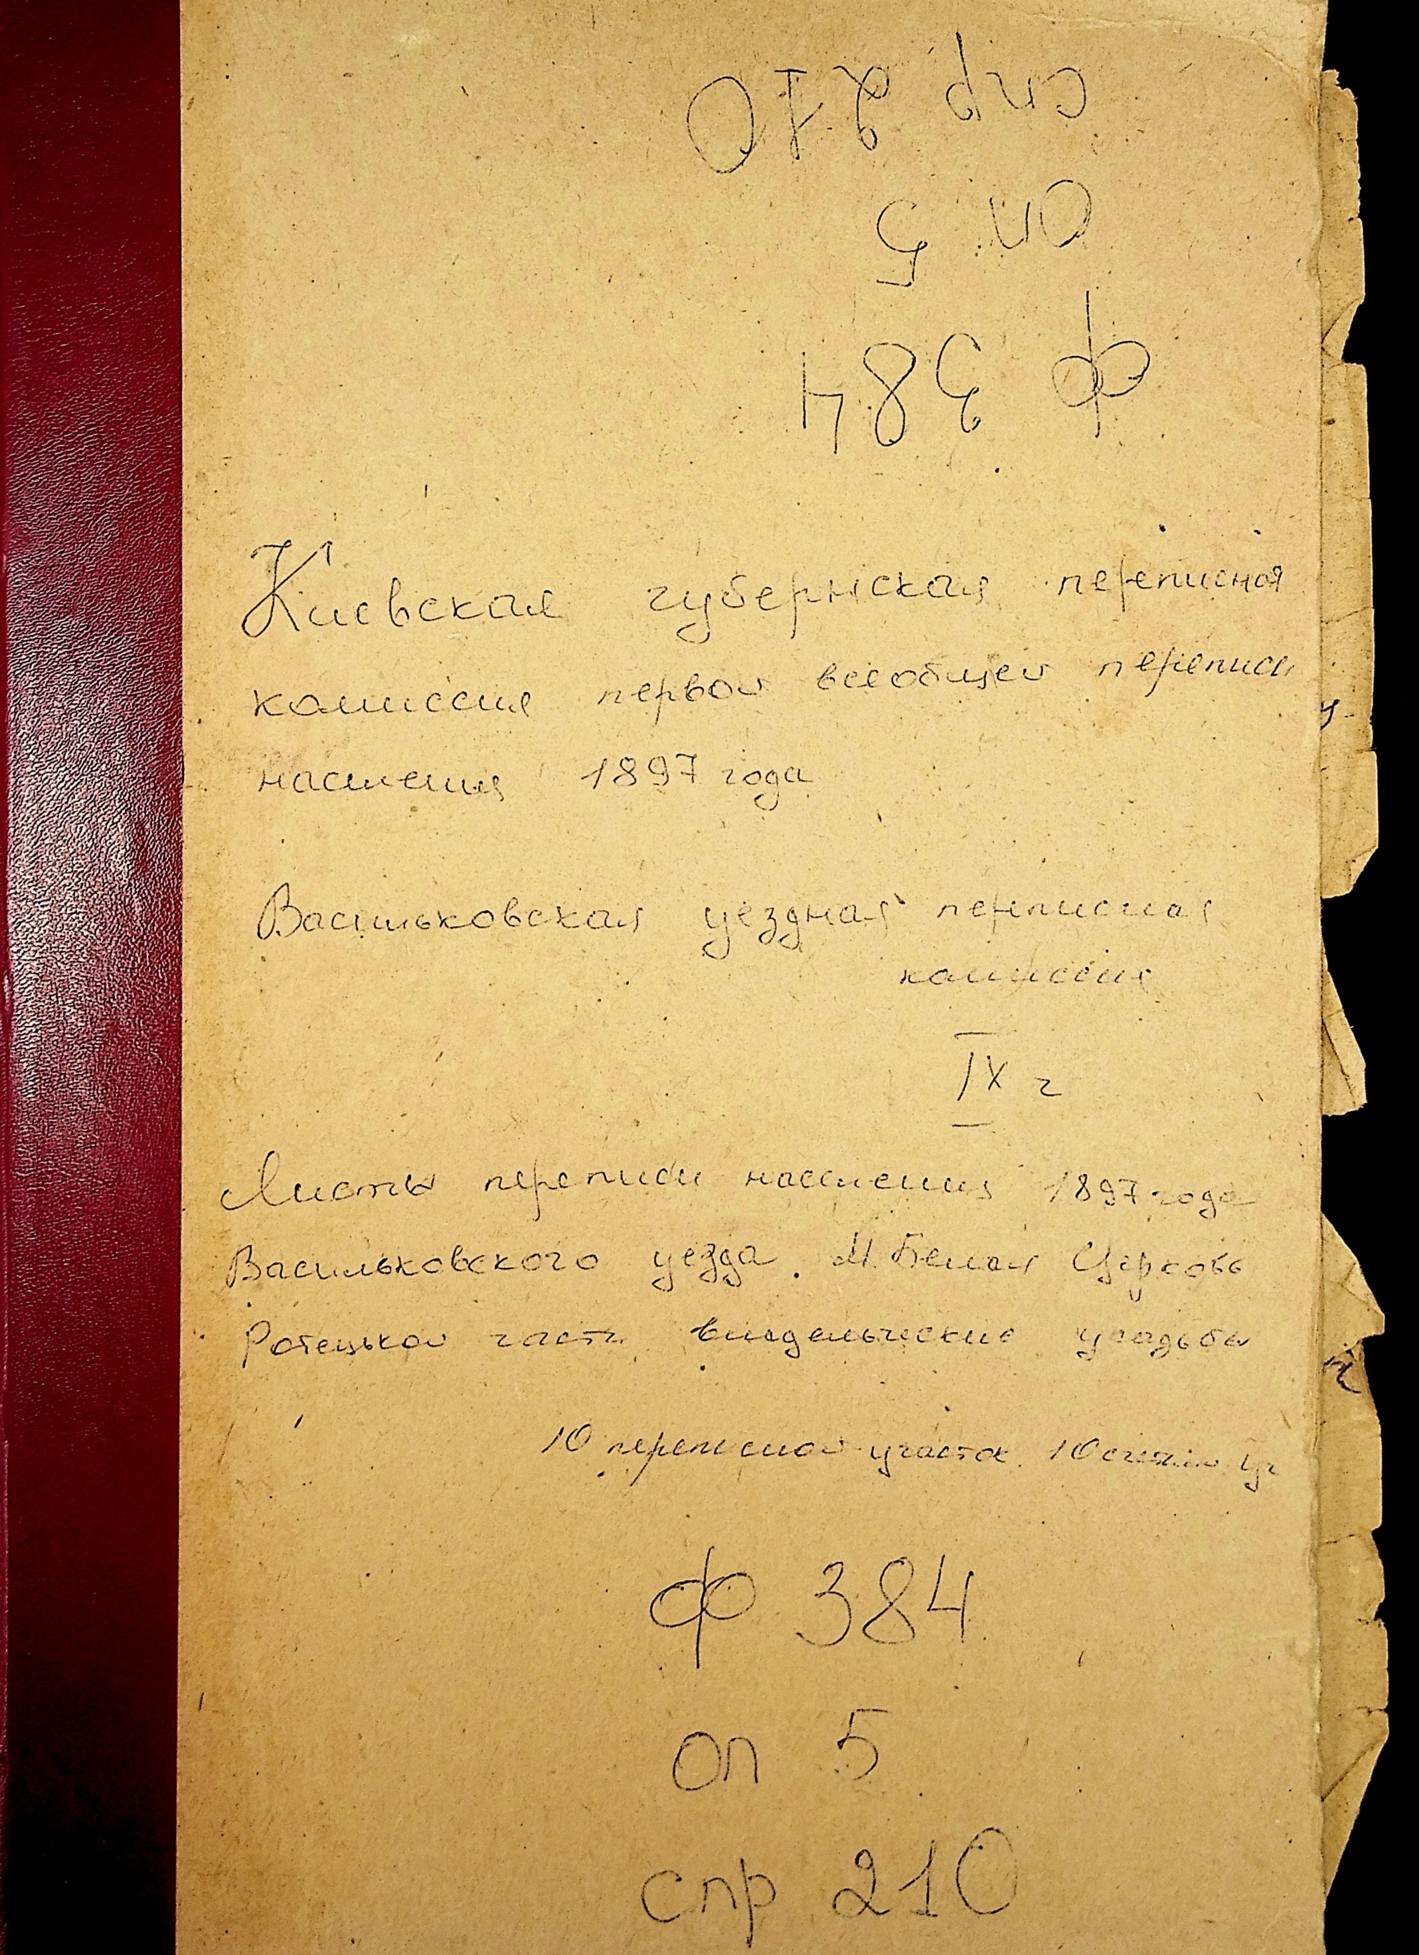 спр 210
оп 5
ф 384
Киевская губернская переписная
комиссия первой всеобщей переписи
населения 1897 года
Васильковская уездная переписная
комиссия
IX г
Листы переписи населения 1897 года
Васильковского уезда. М. Белая Церковь
часть владельческие усадьбы
10 переписной участок 10 счетный уч
ф 384
оп 5
спр 210